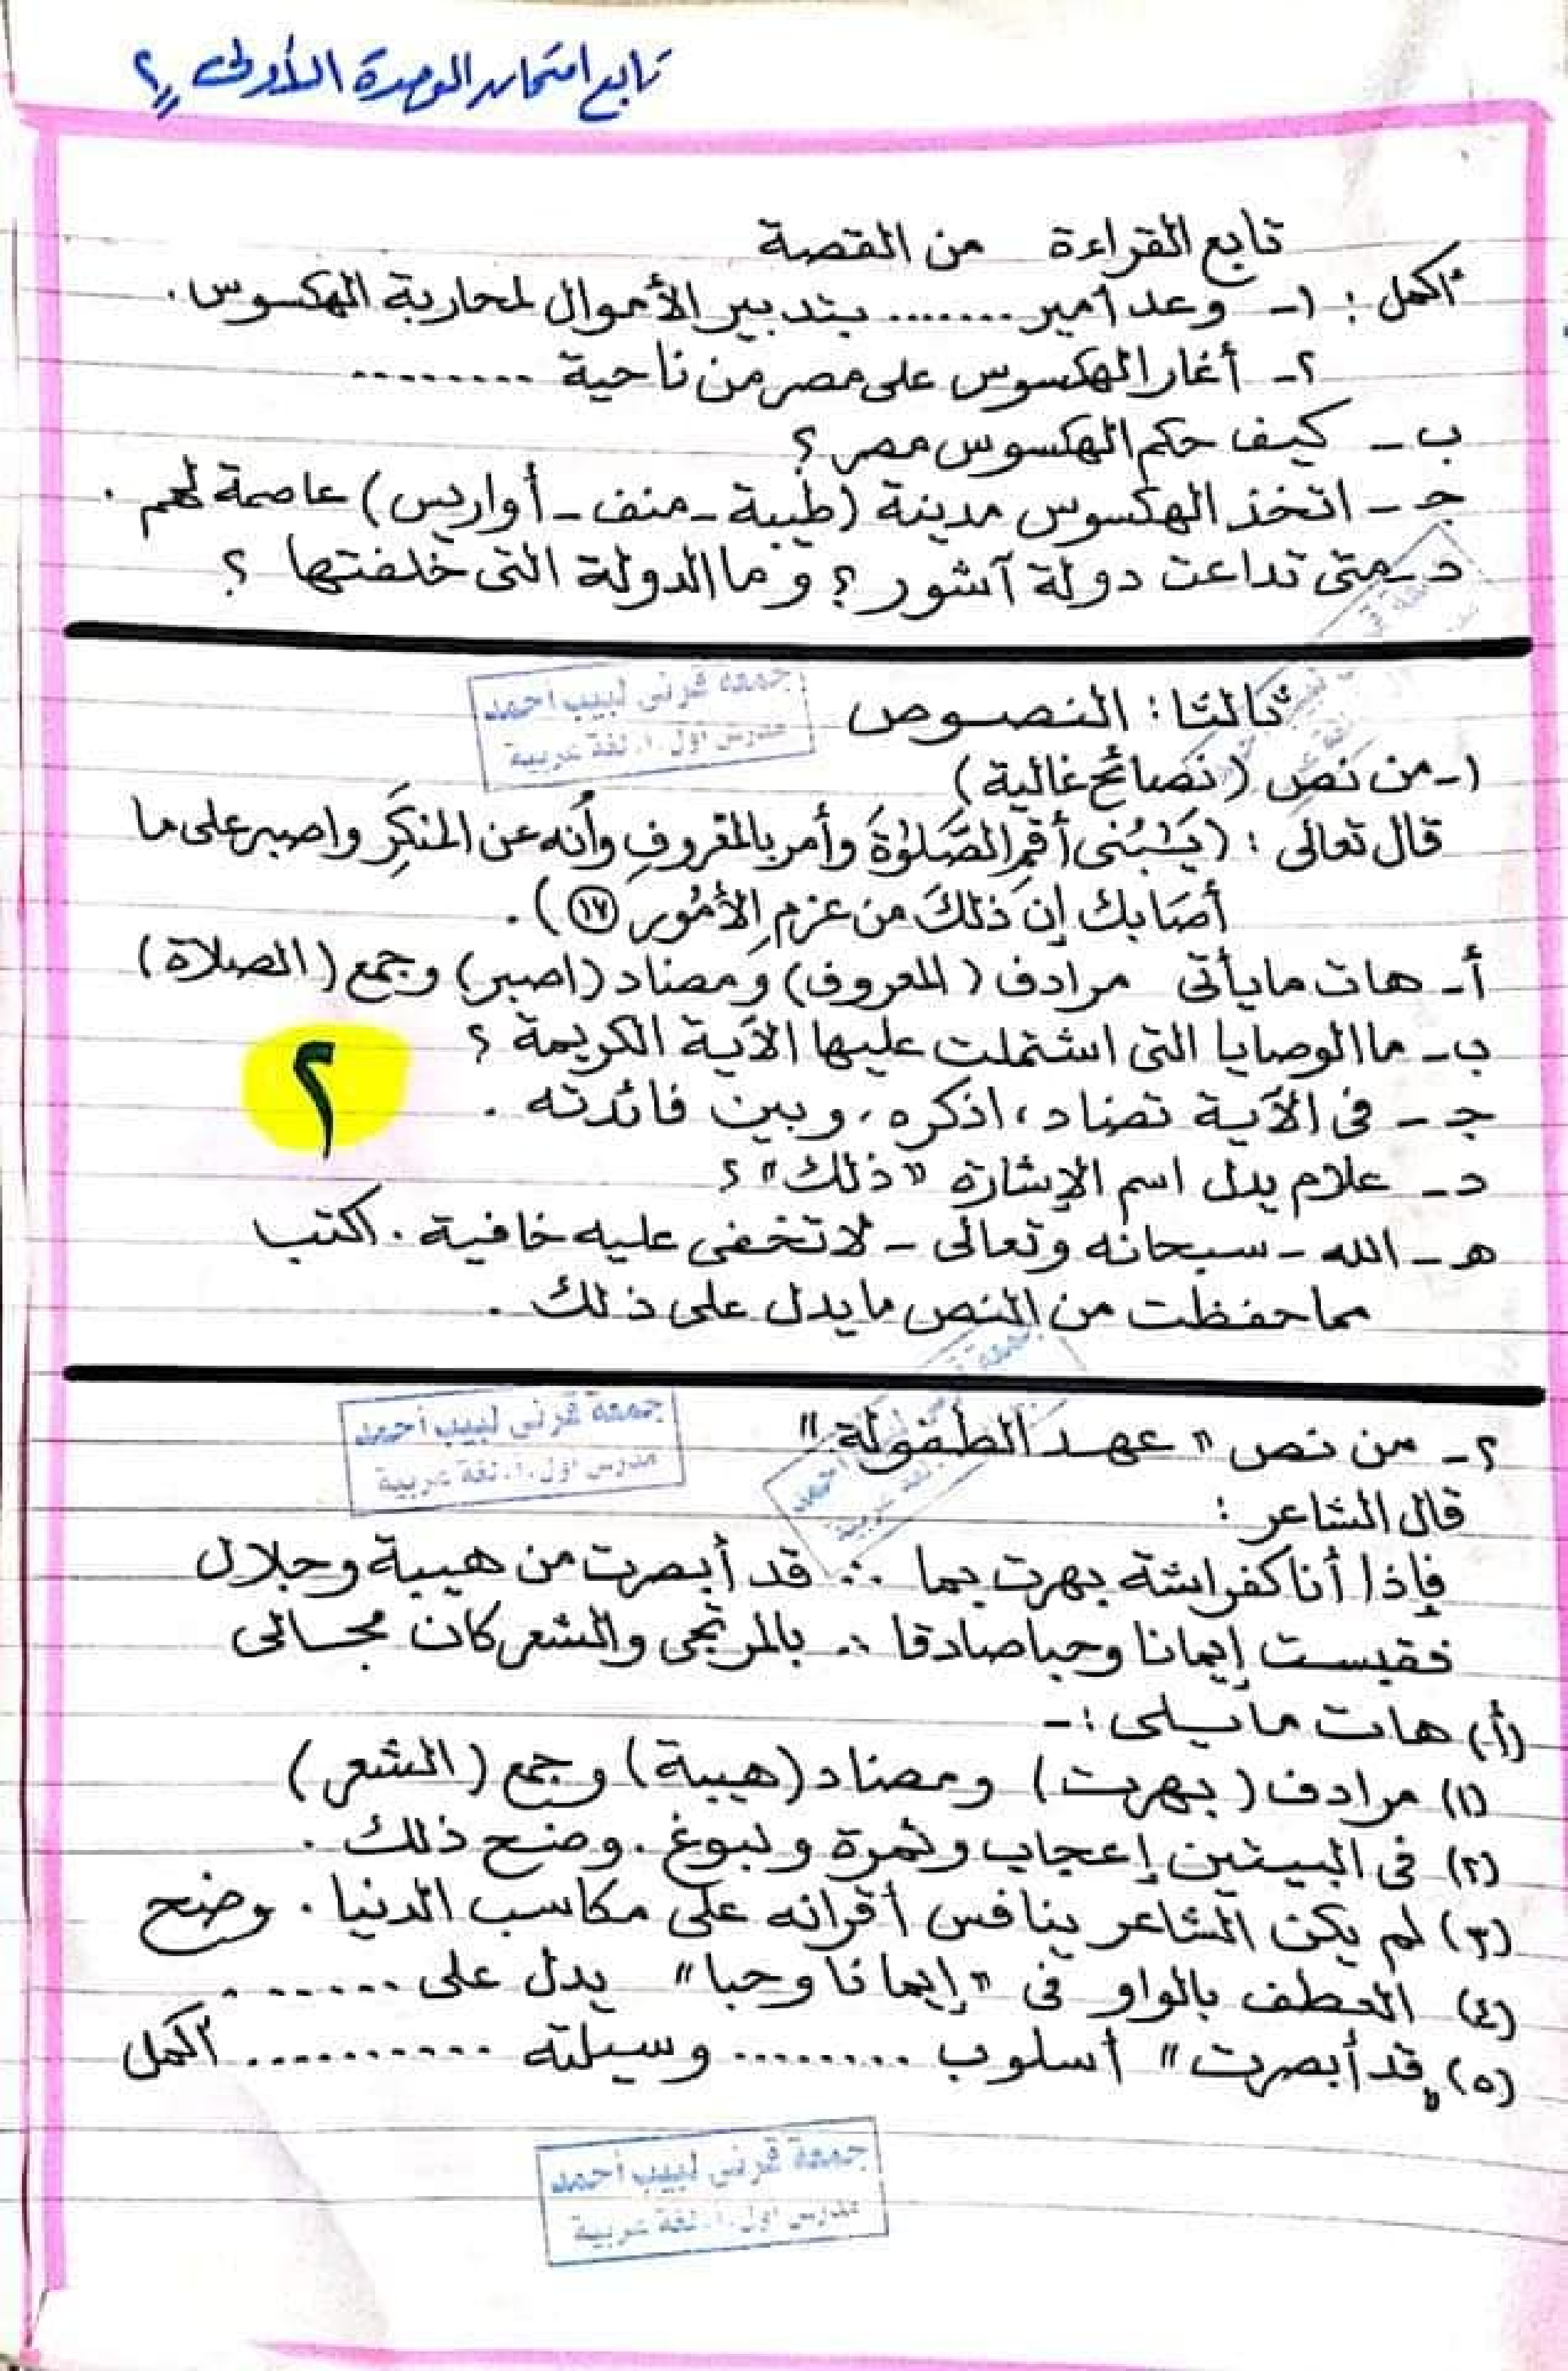 تابع امتحان الوحدة الأولى ٢
تابع القراءة من القصة
أكمل : ١- وعد أمير ....... بتدبير الأموال لمحاربة الهكسوس .
٢- أغار الهكسوس على مصر من ناحية ........
ب - كيف حكم الهكسوس مصر ؟
جـ - اتخذ الهكسوس مدينة (طيبة - منف - أواريس) عاصمة لهم .
د - متى تداعت دولة آشور ؟ وما الدولة التى خلفتها ؟
جمعه قرنى لبيب أحمد
مدرس أول . أ . لغة عربية
ثالثا : النصوص
١- من نص (نصائح غالية)
قال تعالى : (يَٰبُنى أقمِ الصَّلوٰةَ وأمر بالمعروفِ وأنه عن المنكَرِ واصبر على ما
أصَابك إن ذلكَ من عزمِ الأمُور ١٧) .
أ - هات ما يأتى مرادف (المعروف) ومضاد (اصبر) وجمع (الصلاة)
ب - ما الوصايا التى اشتملت عليها الآية الكريمة ؟
٢
جـ - فى الآية تضاد ، اذكره ، وبين فائدته .
د - علام يدل اسم الإشارة "ذلك" ؟
هـ - الله - سبحانه وتعالى - لا تخفى عليه خافية . اكتب
مما حفظت من النص ما يدل على ذلك .
جمعة قرنى لبيب أحمد
مدرس أول . أ . لغة عربية
٢- من نص "عهد الطفولة"
قال الشاعر :
فإذا أنا كفراشة بهرت بما ∴ قد أبصرت من هيبة وجلال
فقبست إيمانا وحبا صادقا ∴ بالمرتجى والشعر كان مجالى
(أ) هات ما يلى :-
(١) مرادف (بهرت) ومضاد (هيبة) وجمع (الشعر)
(٢) فى البيتين إعجاب وثمرة ونبوغ . وضح ذلك .
(٣) لم يكن الشاعر ينافس أقرانه على مكاسب الدنيا . وضح
(٤) العطف بالواو فى "إيمانا وحبا" يدل على .......
(٥) "قد أبصرت" أسلوب ........ وسيلته .......... أكمل
جمعة قرنى لبيب أحمد
مدرس أول . أ . لغة عربية